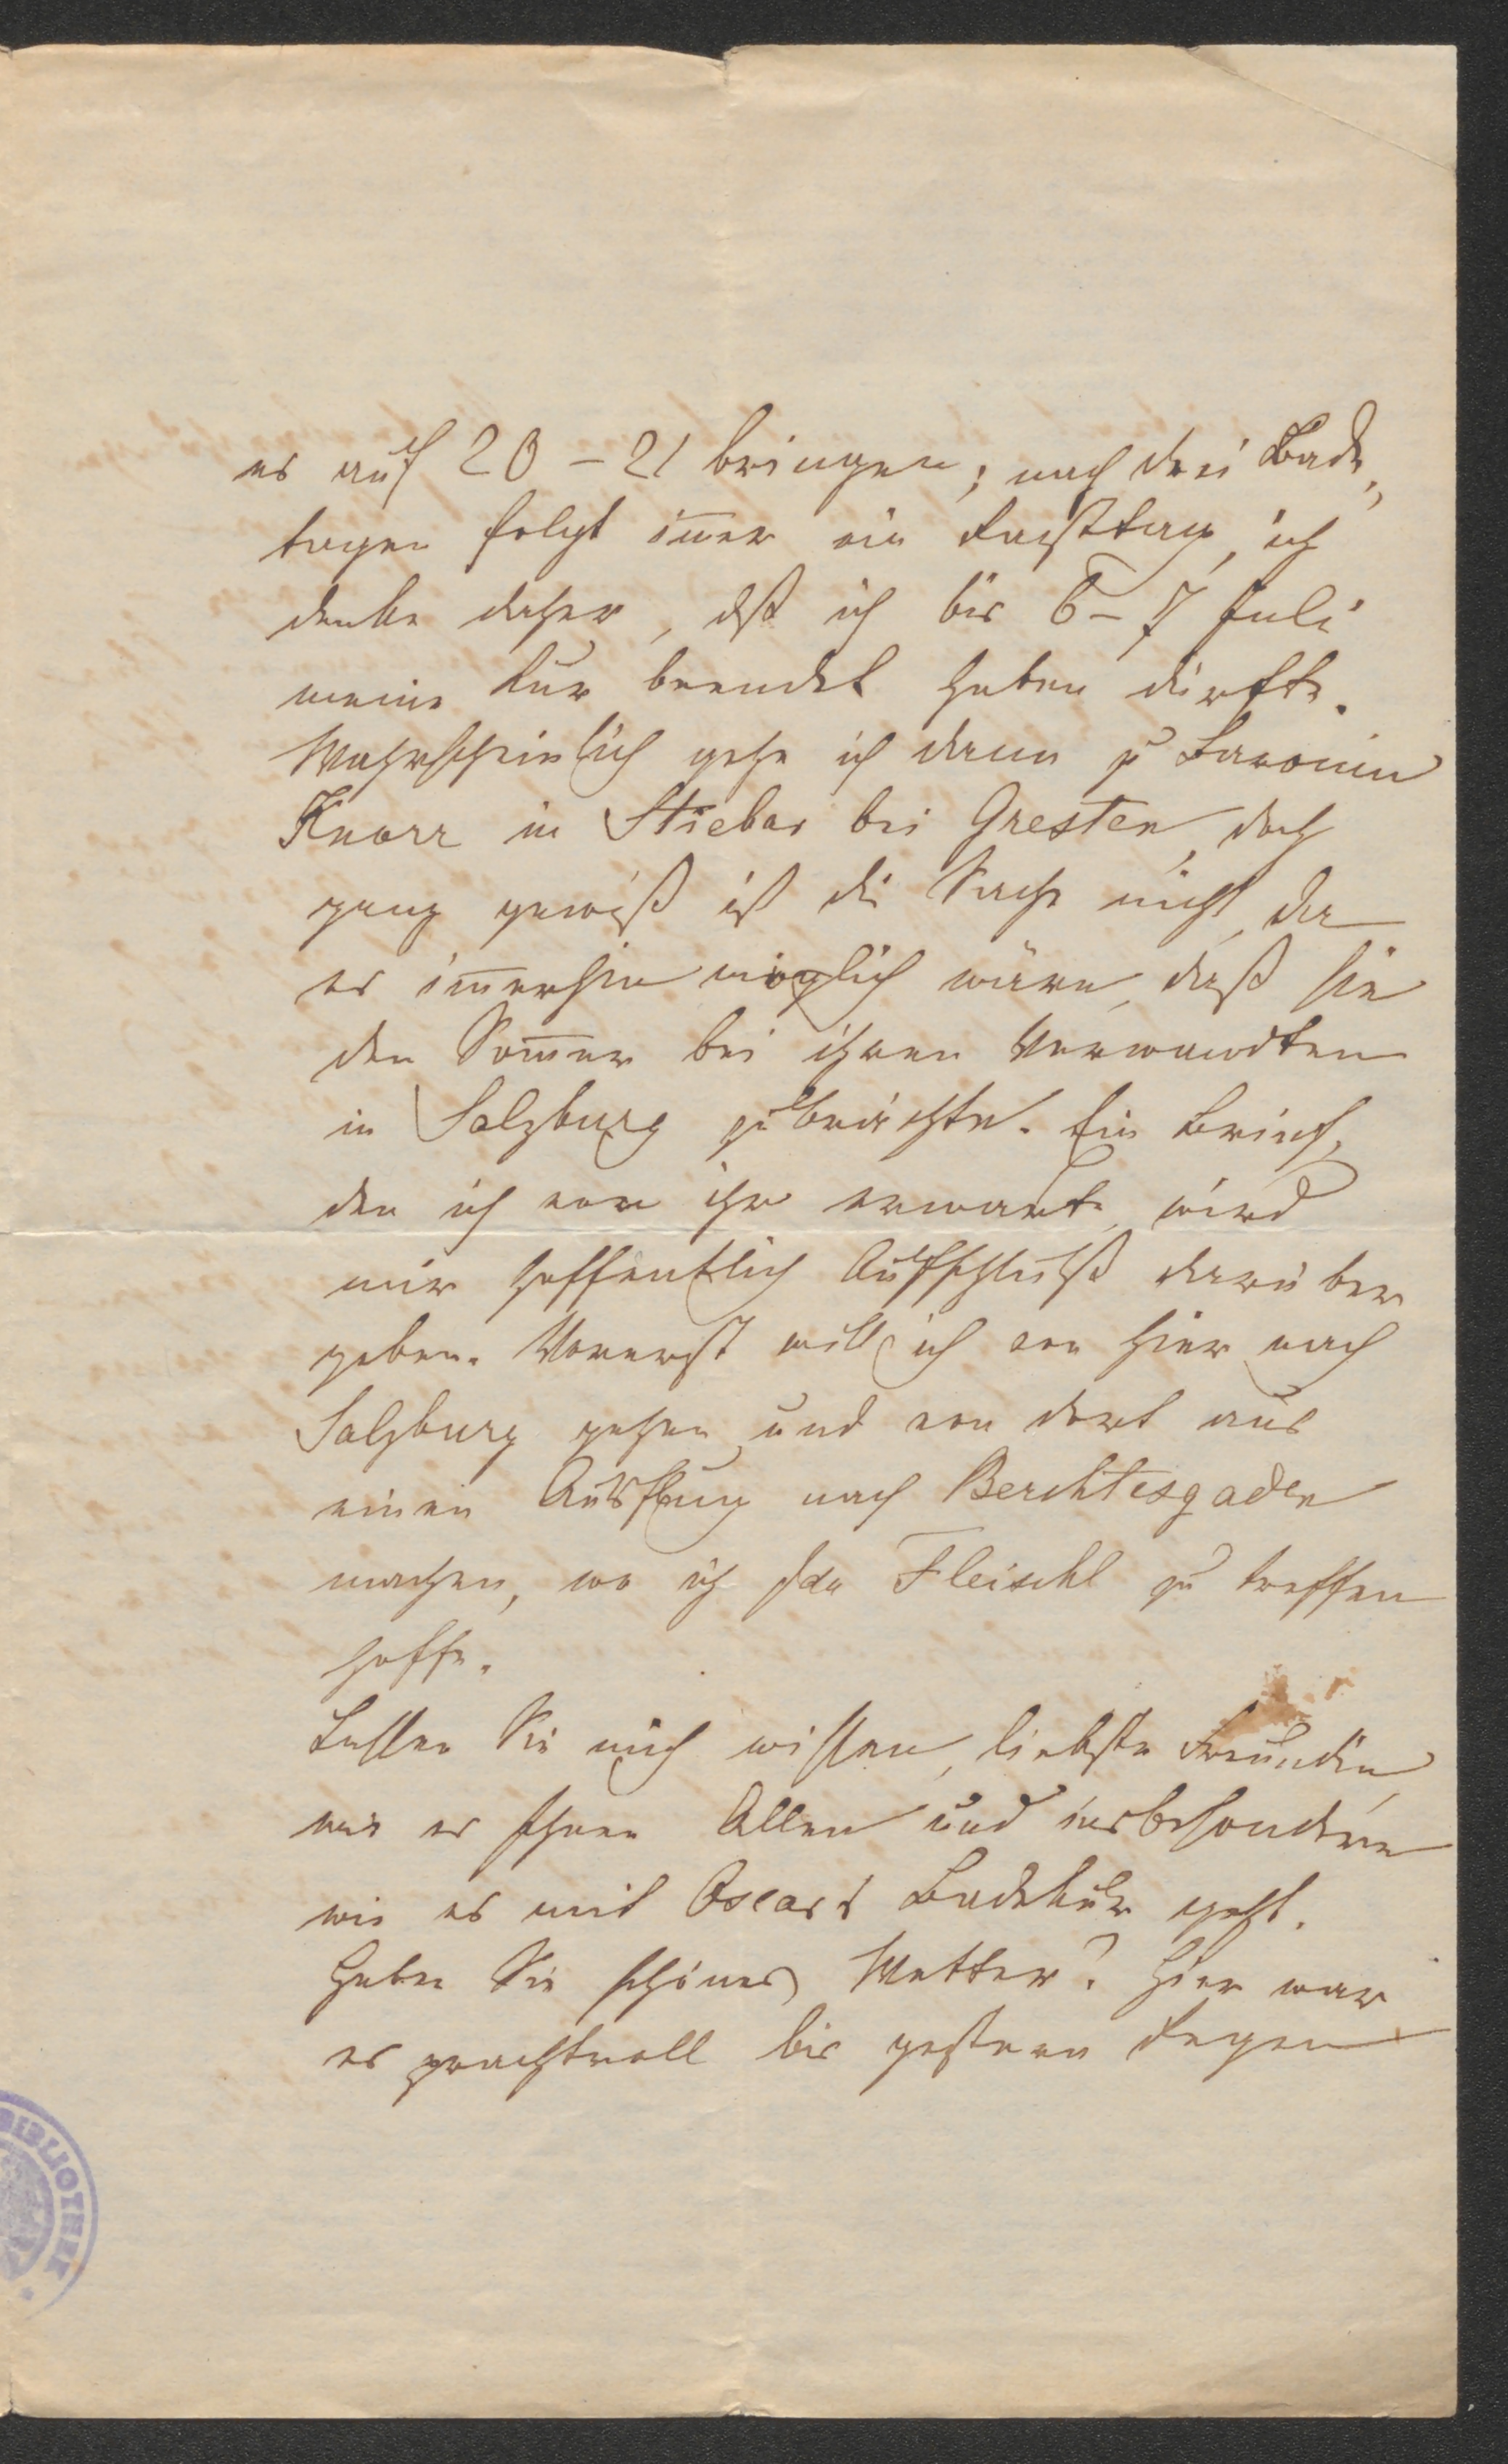 es auf 20 – 21 bringen; nach drei Bade„
tagen folgt im̄er ein Rasttag, ich
denke daher, dß ich bis 6 – 7 Juli
meine Kur beendet haben dürfte.
Wahrscheinlich gehe ich dann zu Baronin
Knorr in Stiebar bei Gresten, doch
ganz gewiß ist die Sache nicht, da
es im̄erhin möglich wäre, daß sie
den Som̄er bei ihren Verwandten
in Salzburg zubrächte. Ein Brief,
den ich von ihr erwarte, wird
mir hoffentlich Aufschluß darüber
geben. Vorerst will ich von hier nach
Salzburg gehen und von dort aus
einen Ausflug nach Berchtesgaden
machen, wo ich Ida Fleischl zu treffen
hoffe.
Lassen Sie mich wissen, liebste Freundin,
wie es Ihnen Allen und insbesondere
wie es mit Oscars Badekur geht.
Haben Sie schönes Wetter? Hier war
es prachtvoll bis gestern Regen
BIBLIOTHEK